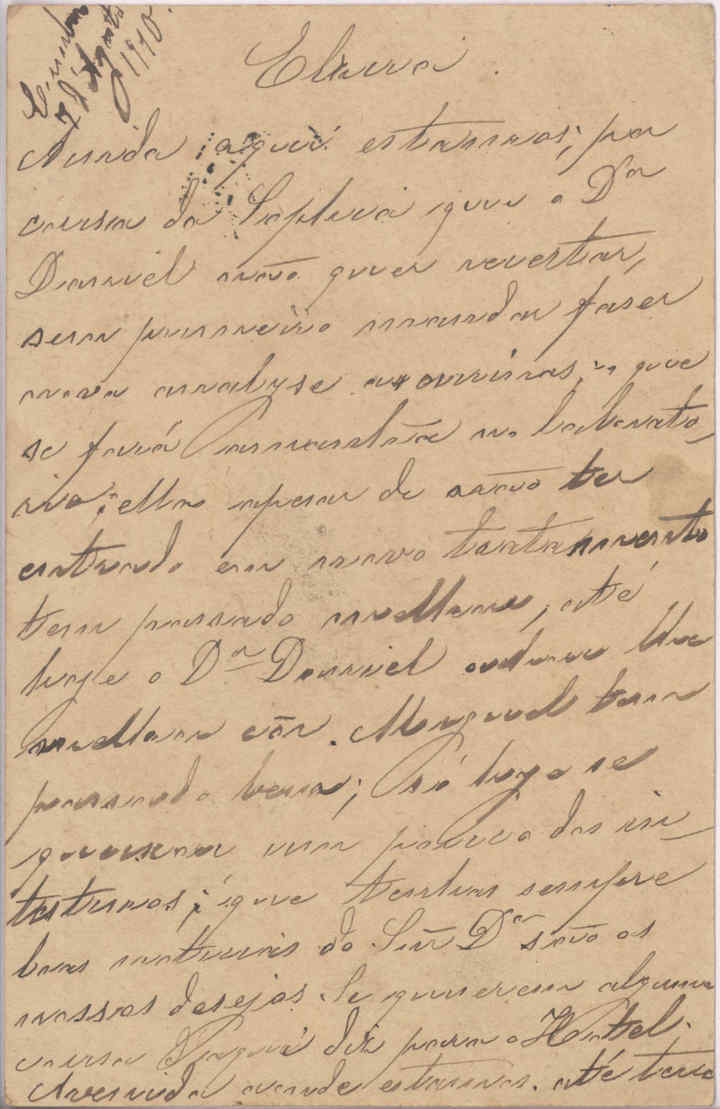 7 de Agosto
1910.
Elvira.
Ainda aqui estamos, por
causa da Saphira que o Dor
Daniel não quer receitar,
sem primeiro mandar faser
nova analyse as ourinas, que
se fará amanhã no laborato
rio; ella apesar de não ter
entrado em novo tratamento
tem passado melhor, até
hoje o Dr Daniel achou lhe
melhor côr. Manuel tem
passado bem; só hoje se
queixou um pouco dos in-
testinos; que tenhas sempre
boas noticias do Snr Dr são os
nossos desejos. Se quiserem alguma
causa d'aqui diz para o Hotel
Avenida aonde estamos. até terça